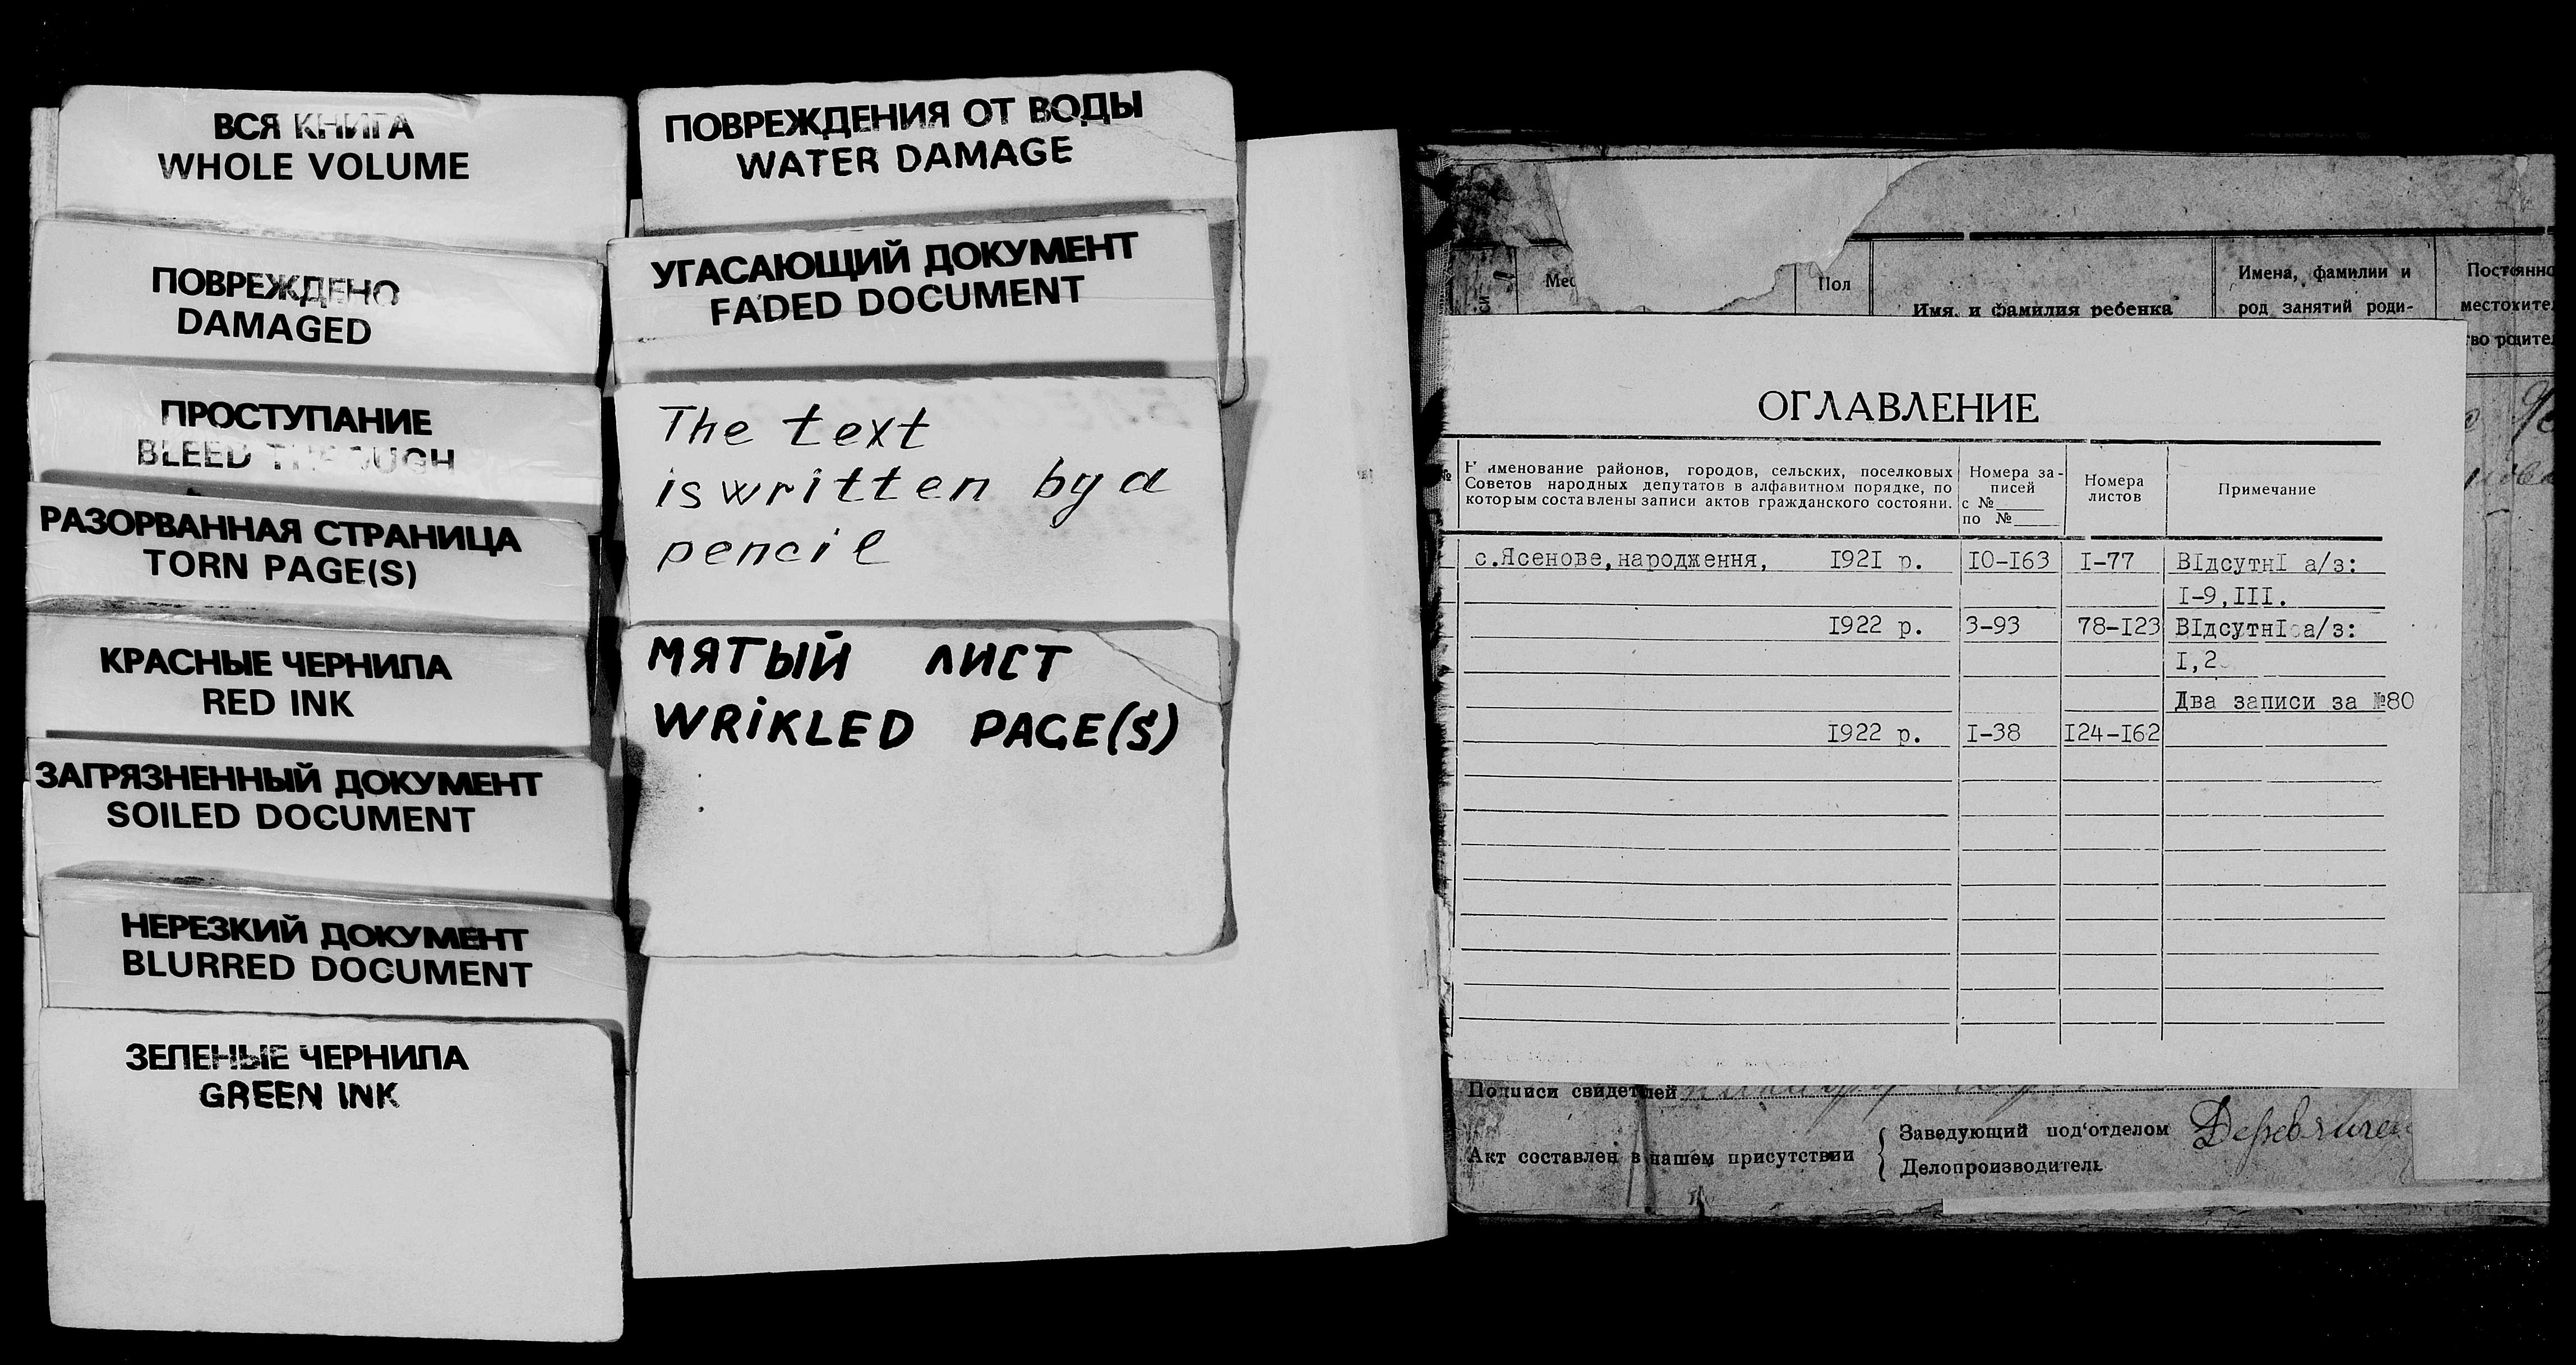 ВСЯ КНИГА
WHOLE VOLUME
ПОВРЕЖДЕНО
DAMAGED
ПРОСТУПАНИЕ
BLEED THROUGH
РАЗОРВАННАЯ СТРАНИЦА
TORN PAGE(S)
КРАСНЫЕ ЧЕРНИЛА
RED INK
ЗАГРЯЗНЕННЫЙ ДОКУМЕНТ
SOILED DOCUMENT
НЕРЕЗКИЙ ДОКУМЕНТ
BLURRED DOCUMENT
ЗЕЛЕНЫЕ ЧЕРНИЛА
GREEN INK
ПОВРЕЖДЕНИЯ ОТ ВОДЫ
WATER DAMAGE
УГАСАЮЩИЙ ДОКУМЕНТ
FADED DOCUMENT
The text
is written by a
pencil
МЯТЫЙ ЛИСТ
WRIKLED PAGE(S)
Пол
Имя и фамилия ребенка
Имена, фамилии и
род занятий роди-
ОГЛАВЛЕНИЕ
№
Наименование районов, городов, сельских, поселковых
Советов народных депутатов в алфавитном порядке, по
которым составлены записи актов гражданского состояни.
Номера за-
писей
с №
по №
Номера
листов
Примечание
с.Ясенове,народження, I92I р. IO-I63 I-77 ВIдсутнI а/з:
I-9,III.
I922 р. 3-93 78-I23 ВIдсутнI а/з:
I,2
Два записи за №80
I922 р. I-38 I24-I62
Подписи свидетелей
Акт составлен в нашем присутствии
Заведующий под'отделом
Делопроизводитель